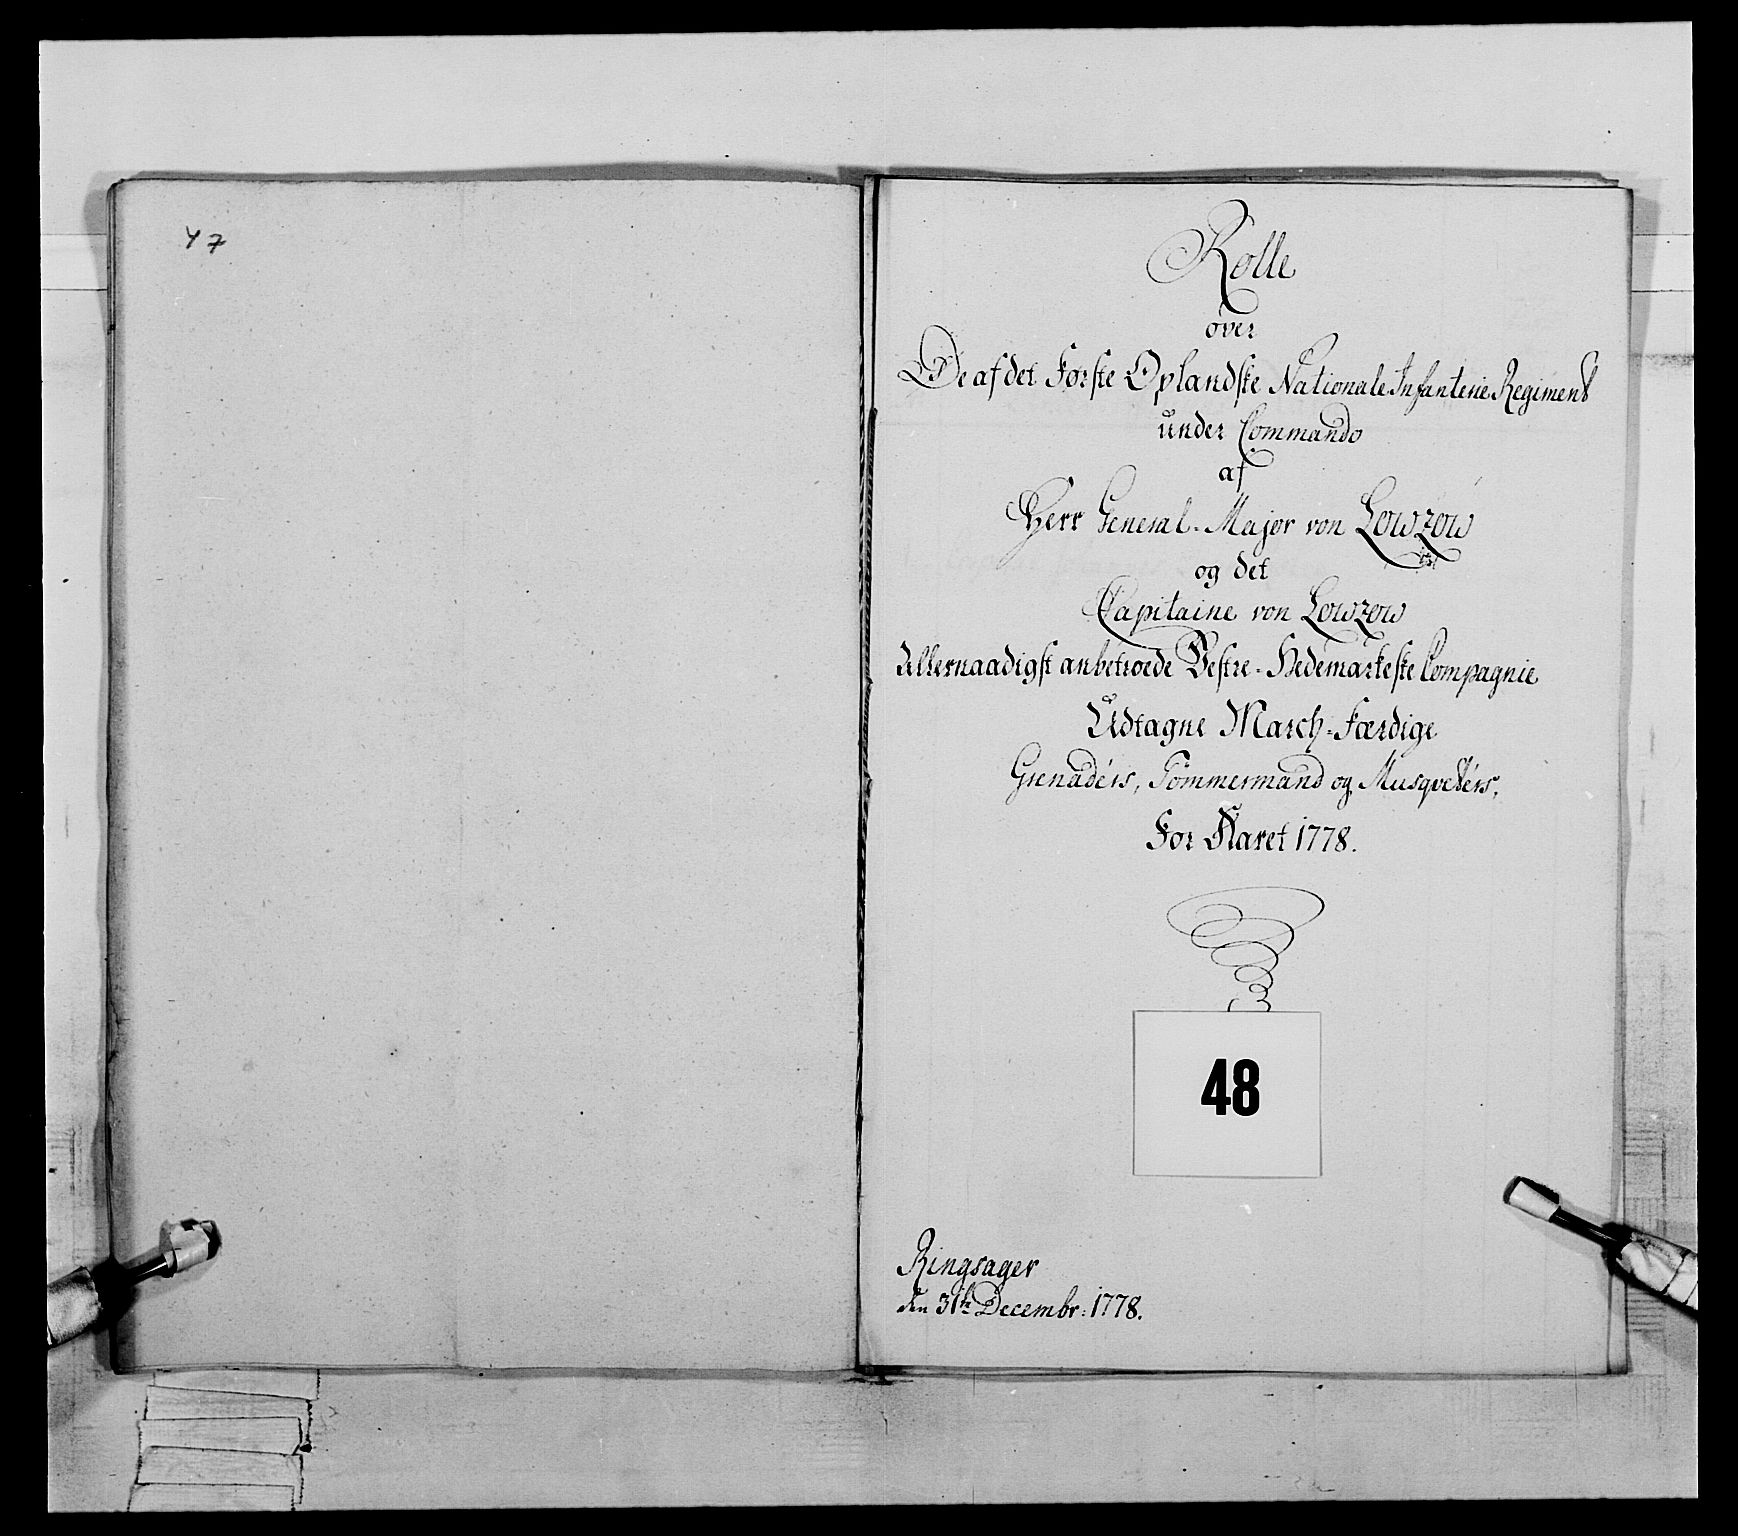 47
Rolle
over
De af det Første Oplandske Nationale Infanterie Regiment
under Commando
af
Herr General-Major von Lowzow
og det
Capitaine von Lowzow
Allernaadigst anbetroede Vestre-Hedemarkske Compagnie
Udtagne March-Færdige
Grenadérs, Tömmermænd og Musqvetérs,
For Aaret 1778.
48
Ringsager
den 31te Decembr: 1778.